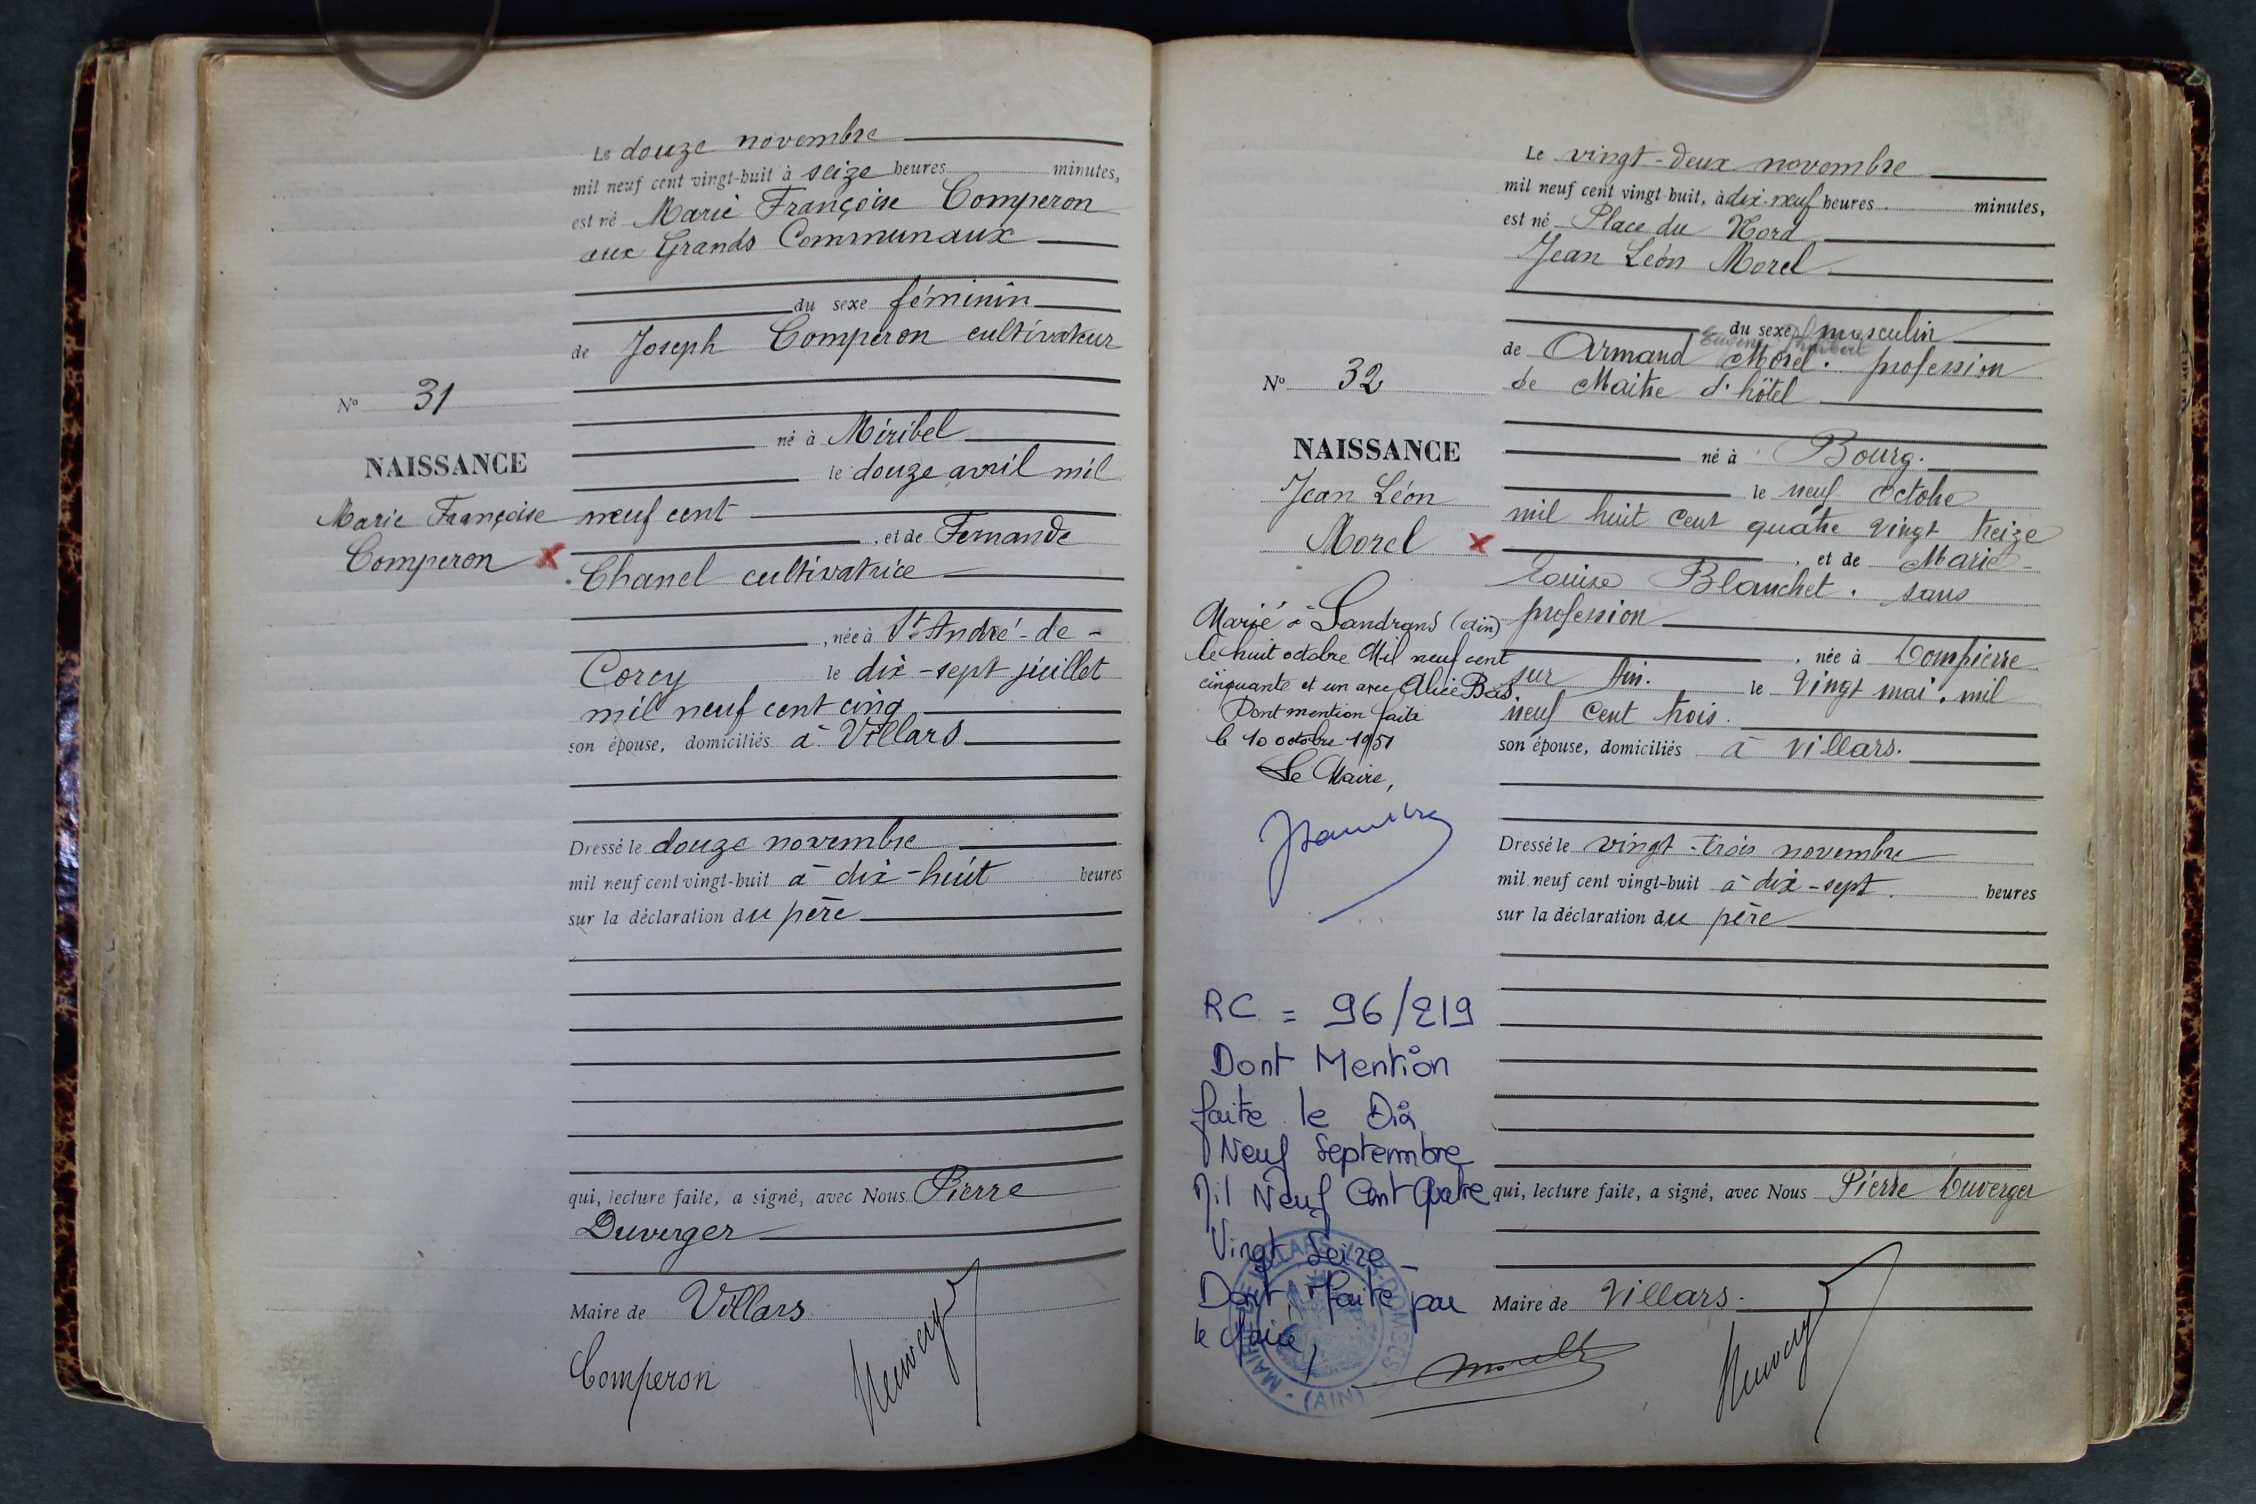 Le douze novembre
mil neuf cent vingt-huit à seize heures minutes,
est né Marie Françoise Comperon
aux Grands Communaux
du sexe féminin
de Joseph Comperon cultivateur
N° 31
né à Miribel
NAISSANCE
le douze avril mil
Marie Françoise
neuf cent
, et de Fernande
Comperon
Chanel cultivatrice
, née à St André-de-
Corcy le dix-sept juillet
mil neuf cent cinq
son épouse, domiciliés à Villars
Dressé le douze novembre
mil neuf cent vingt-huit à dix-huit heures
sur la déclaration du père
qui, lecture faite, a signé, avec Nous Pierre
Duverger
Maire de Villars
Comperon
Le vingt-deux novembre
mil neuf cent vingt-huit, à dix-neuf heures minutes,
est né Place du Nord
Jean Léon Morel
du sexe masculin
de Armand Morel. profession
de Maitre d'hôtel
N° 32
NAISSANCE
né à Bourg.
Jean Léon
Morel
le neuf octobre
mil huit cent quatre vingt treize
, et de Marie
Louise Blanchet. sans
profession
, née à Dompierre
sur Ain. le vingt mai. mil
neuf cent trois.
son épouse, domiciliés à Villars.
Marié à Sandrans (Ain)
le huit octobre Mil neuf cent
cinquante et un avec Alice Bas.
Dont mention faite
le 10 octobre 1951
Le Maire,
Dressé le vingt-trois novembre
mil neuf cent vingt-huit à dix-sept. heures
sur la déclaration du père
RC = 96/219
Dont Mention
faite le Dix
Neuf Septembre
Mil Neuf Cent Quatre
Vingt Seize
Dont faite par
le Maire,
qui, lecture faite, a signé, avec Nous Pierre Duverger
Maire de Villars.
MAIRIE DE VILLARS-LES-DOMBES
(AIN)